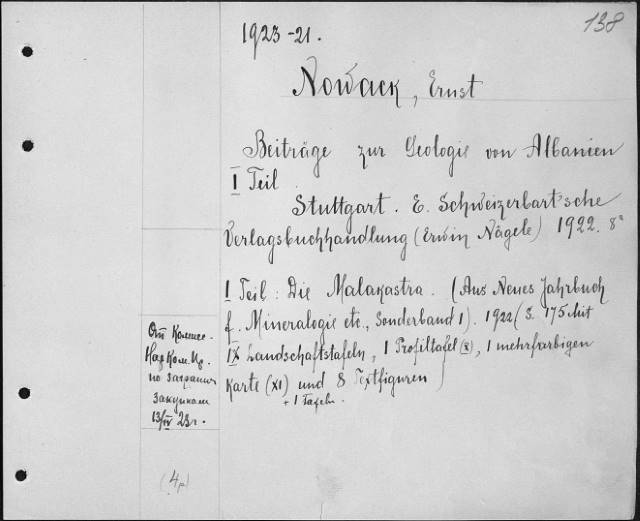 138
1923-21.
Nowack, Ernst
Beiträge zur Geologie von Albanien
I Teil
Stuttgart. E. Schweizerbart'sche
Verlagsbuchhandlung (Erwin Nägele) 1922. 8°
I Teil: Die Malakastra. (Aus Neues Jahrbuch
f. Mineralogie etc., Sonderband 1). 1922 (S. 175 Mit
IX Landschaftstafeln, 1 Profiltafel (X), 1 mehrfarbigen
Karte (XI) und 8 Textfiguren)
+ 1 Tafeln.
От Комисс.
Нар.Ком.Пр.
по загранич
закупкам
13/IV 23 г.
(4р)